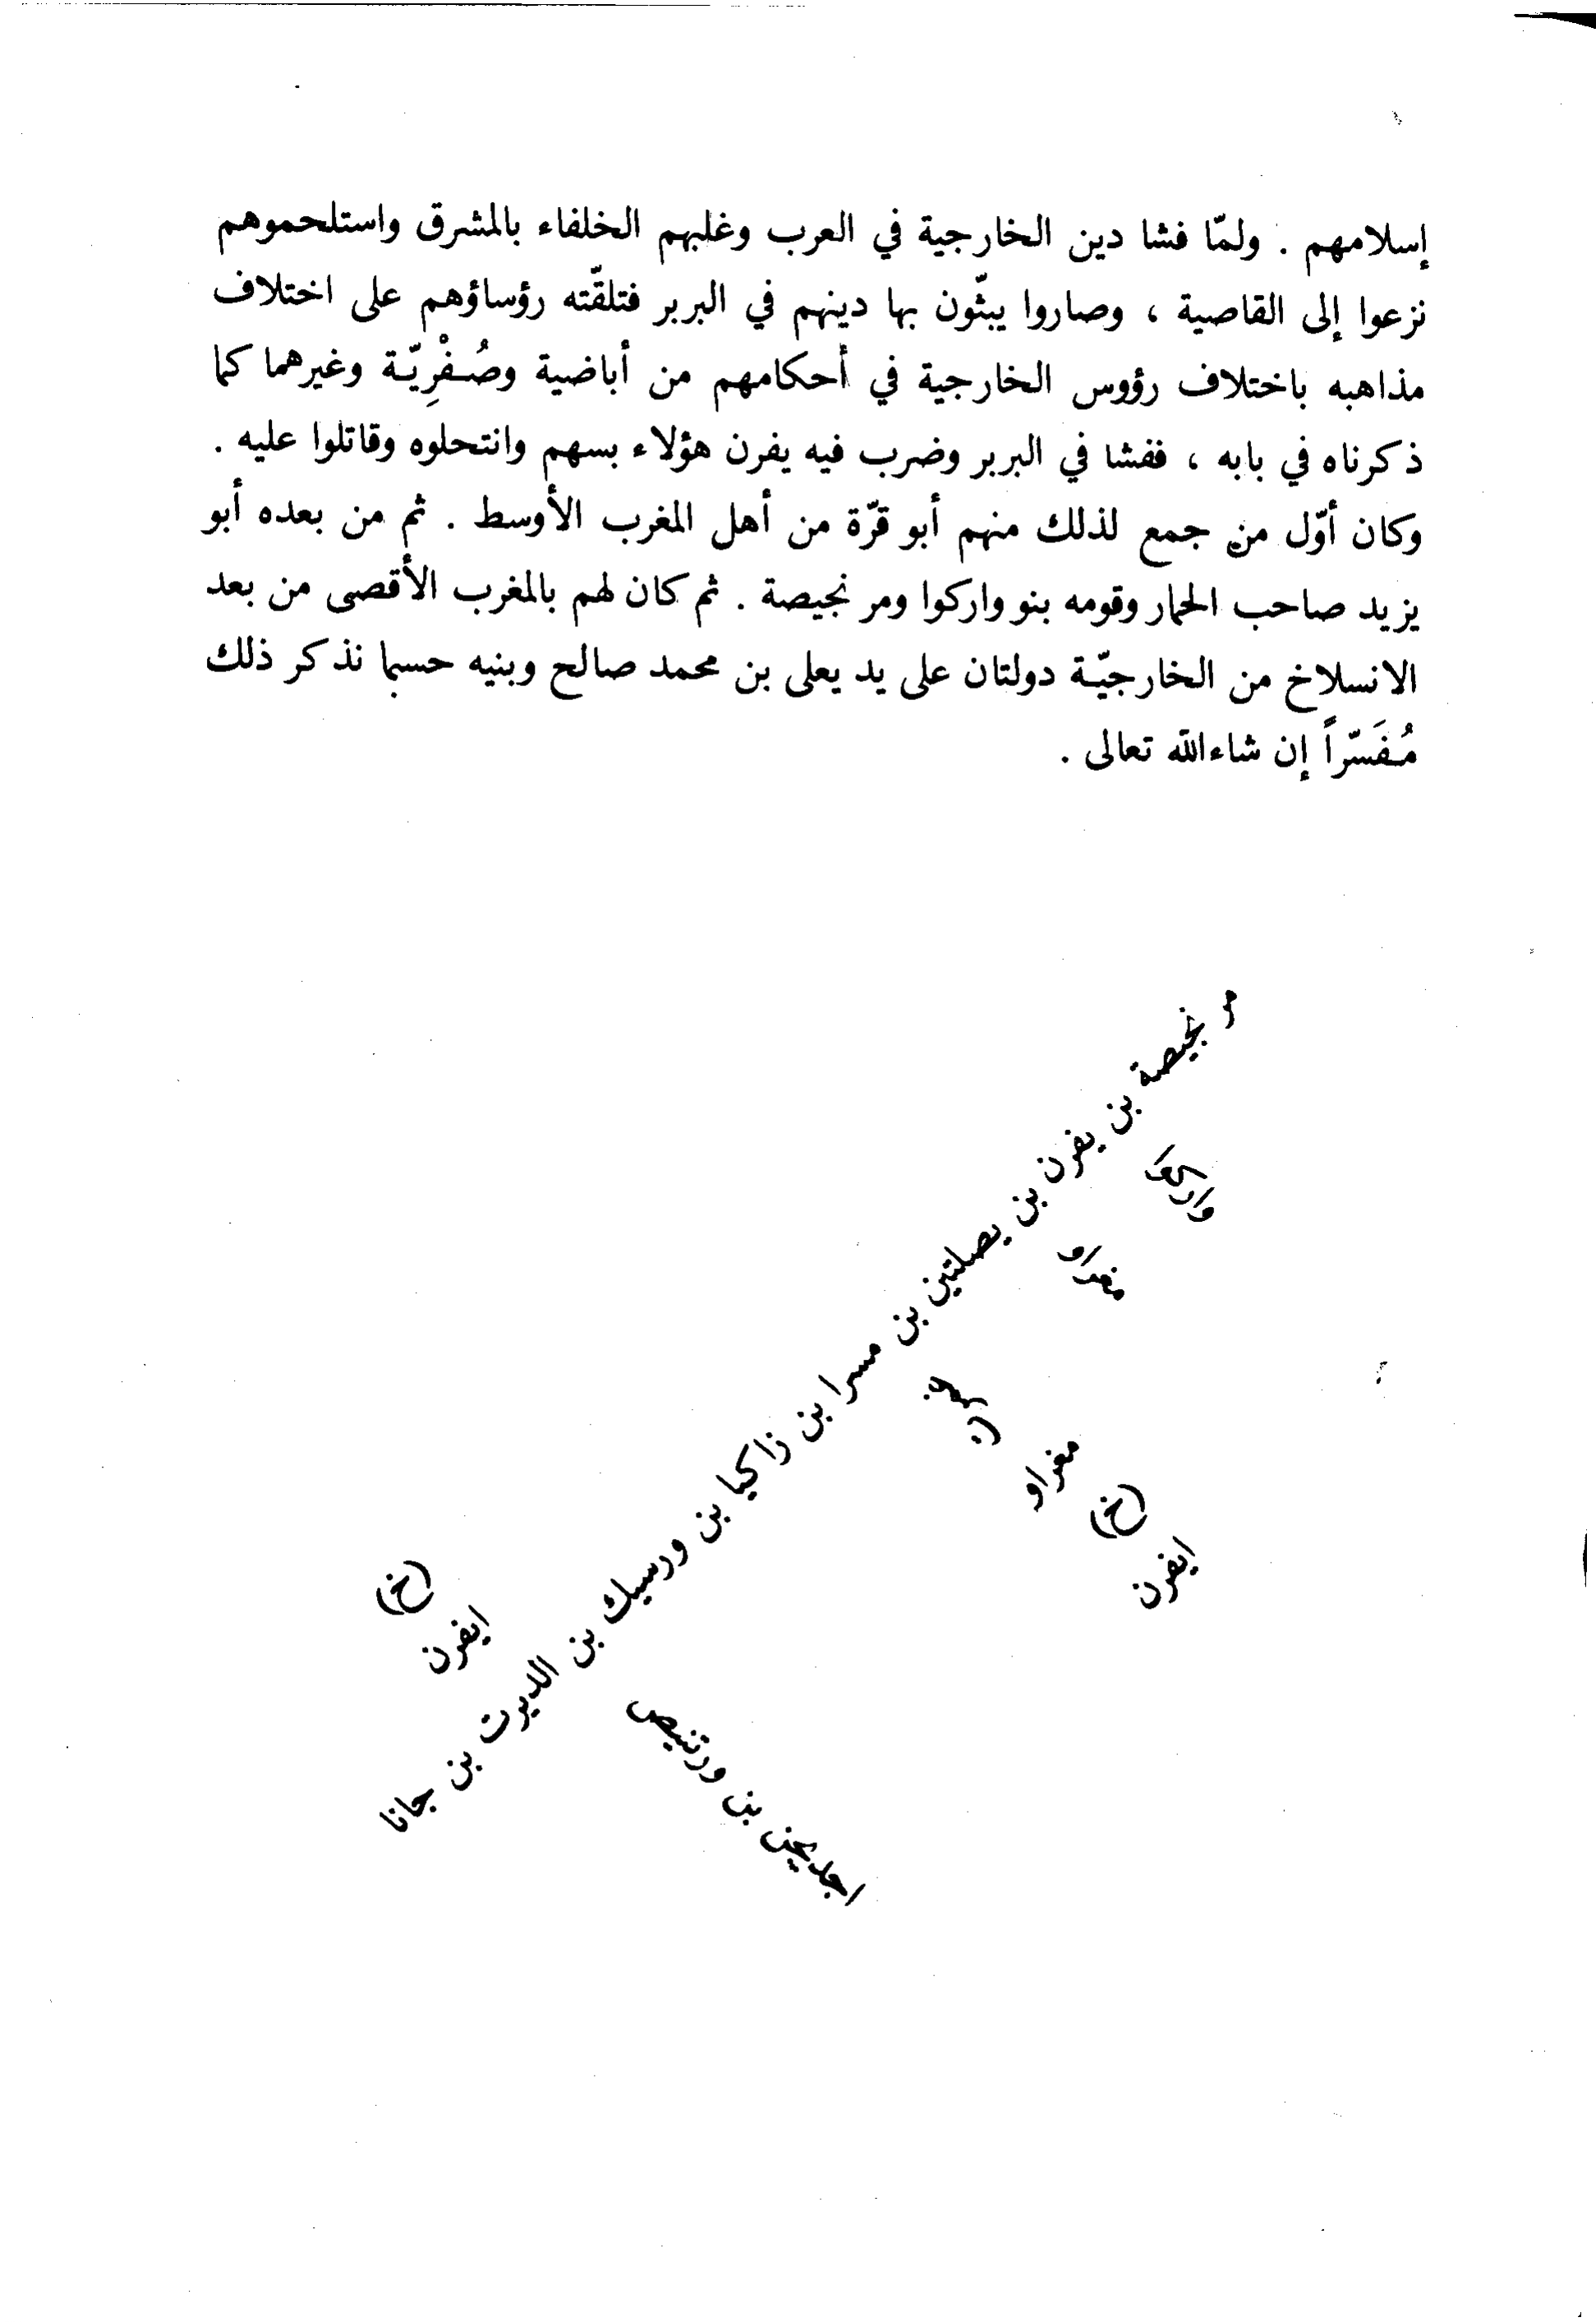 إسلامهم . ولمّا فشا دين الخارجية في العرب وغلبهم الخلفاء بالمشرق واستلحموهم
نزعوا إلى القاصية ، وصاروا يبثّون بها دينهم في البربر فتلقّته رؤساؤهم على اختلاف
مذاهبه باختلاف رؤوس الخارجية في أحكامهم من أباضية وصُفْرِيّة وغيرهما كما
ذكرناه في بابه ، ففشا في البربر وضرب فيه يفرن هؤلاء بسهم وانتحلوه وقاتلوا عليه .
وكان أوّل من جمع لذلك منهم أبو قرّة من أهل المغرب الأوسط . ثم من بعده أبو
يزيد صاحب الحمار وقومه بنو واركوا ومر نجيصة . ثم كان لهم بالمغرب الأقصى من بعد
الانسلاخ من الخارجيّة دولتان على يد يعلى بن محمد صالح وبنيه حسبما نذكر ذلك
مُفَسّراً إن شاءالله تعالى .
مر نجيصة بن يفرن بن يصلتين بن مسرا بن زاكيا بن ورسيك بن الديرت بن جانا
مغراو
مغراو
(خ)
ايفرن
(خ)
ايفرن
بن ورتنيص